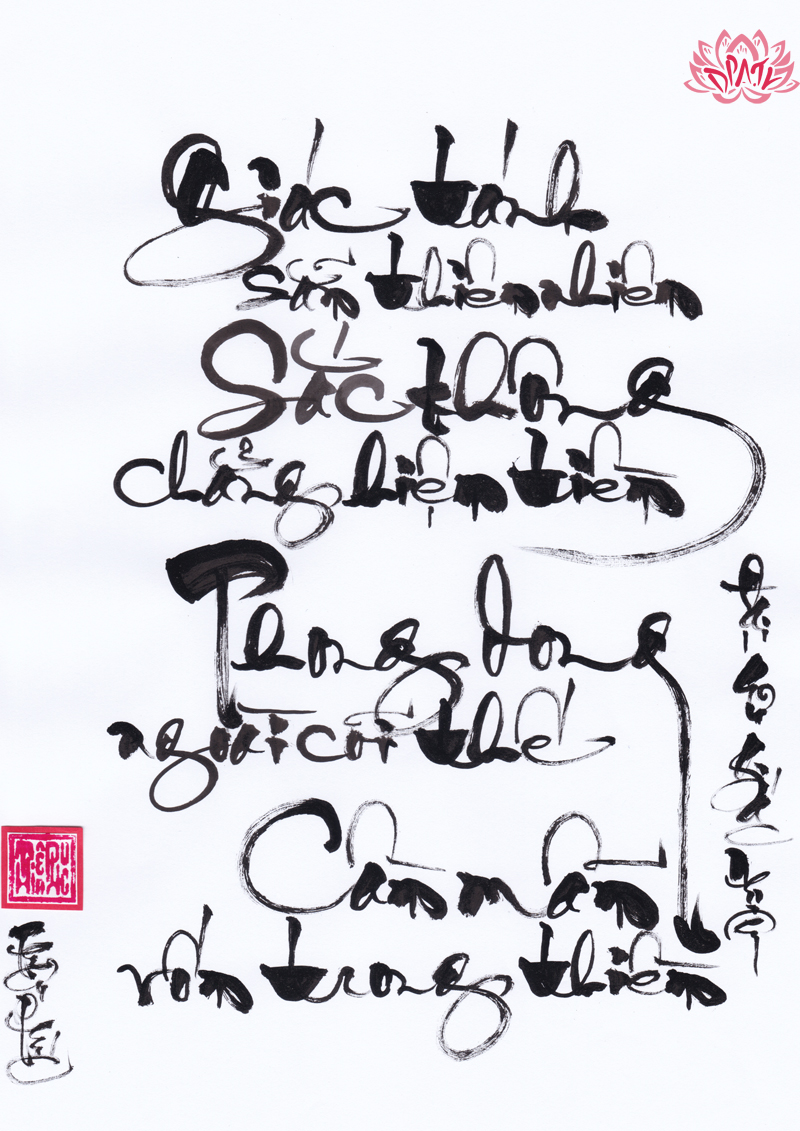 ĐPATK
Giác tánh
sẵn thiên nhiên
Sắc thông
chẳng hiện tiền
Thong dong
ngoài cõi thế
Cần mẫn
vốn trong thiền